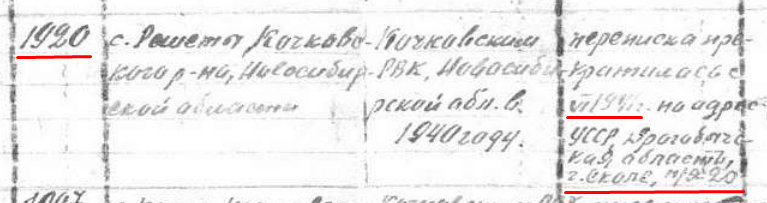 1920
с. Решеты Кочковс-
кого р-на, Новосибир-
ской области
Кочковским
РВК, Новосиби-
рской обл. в
1940 году.
переписка пре-
кратилась с
VI 1941г. на адрес
УССР, Дрогобыч-
кая, области,
г. Сколе, п/я 20